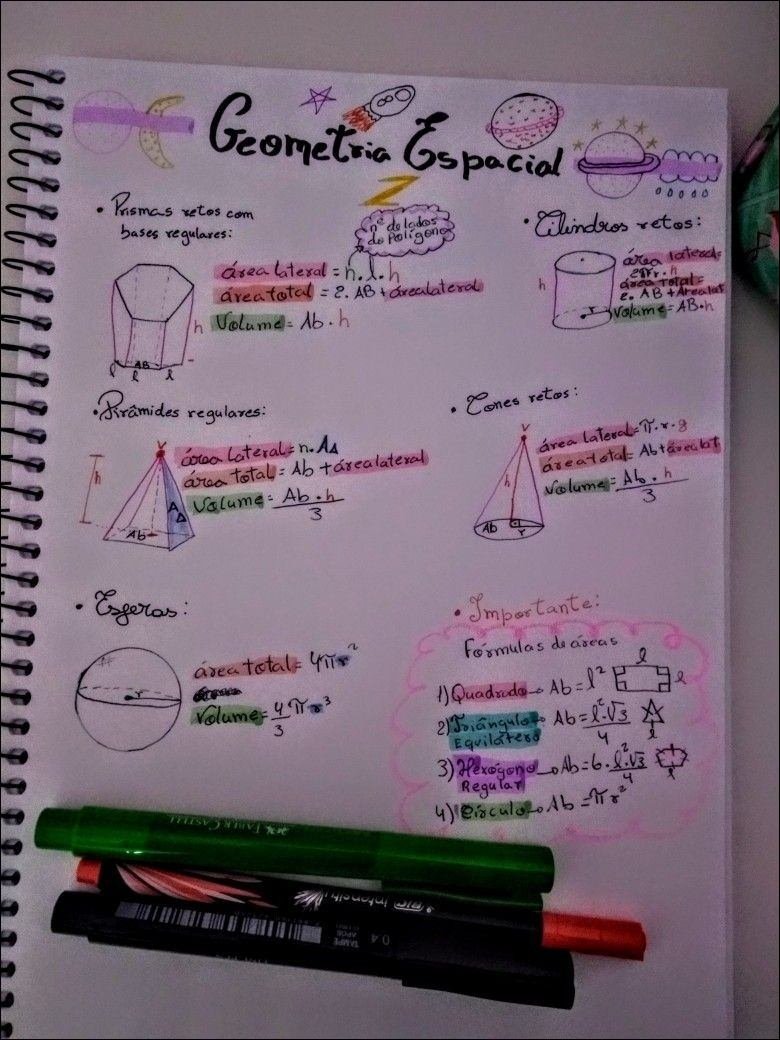 Geometria Espacial
• Prismas retos com
bases regulares:
nº de lados
do Polígono
área lateral = n.l.h
área total = 2.AB + árealateral
Volume = Ab.h
h
AB
l l l
• Cilindros retos:
área lateral=
2πr.h
área total=
2.AB+Árealat
Volume=AB.h
h
r
• Pirâmides regulares:
V
área lateral=n.AΔ
área total = Ab + árealateral
Volume = Ab.h
3
h
AΔ
Ab
• Cones retos:
V
área lateral=π.r.g
área total=Ab+árealat
Volume=Ab.h
3
h
Ab
r
• Esferas:
área total= 4πr²
Volume=4πr³
3
r
• Importante:
Fórmulas de áreas
1) Quadrado → Ab = l²
l
l
2) Triângulo → Ab = l².√3
Equilátero 4
l
3) Hexágono → Ab = 6.l².√3
Regular 4
l
4) Círculo → Ab = πr²
FABER-CASTELL
BIC intensity
TAMPE
APOS
0.4